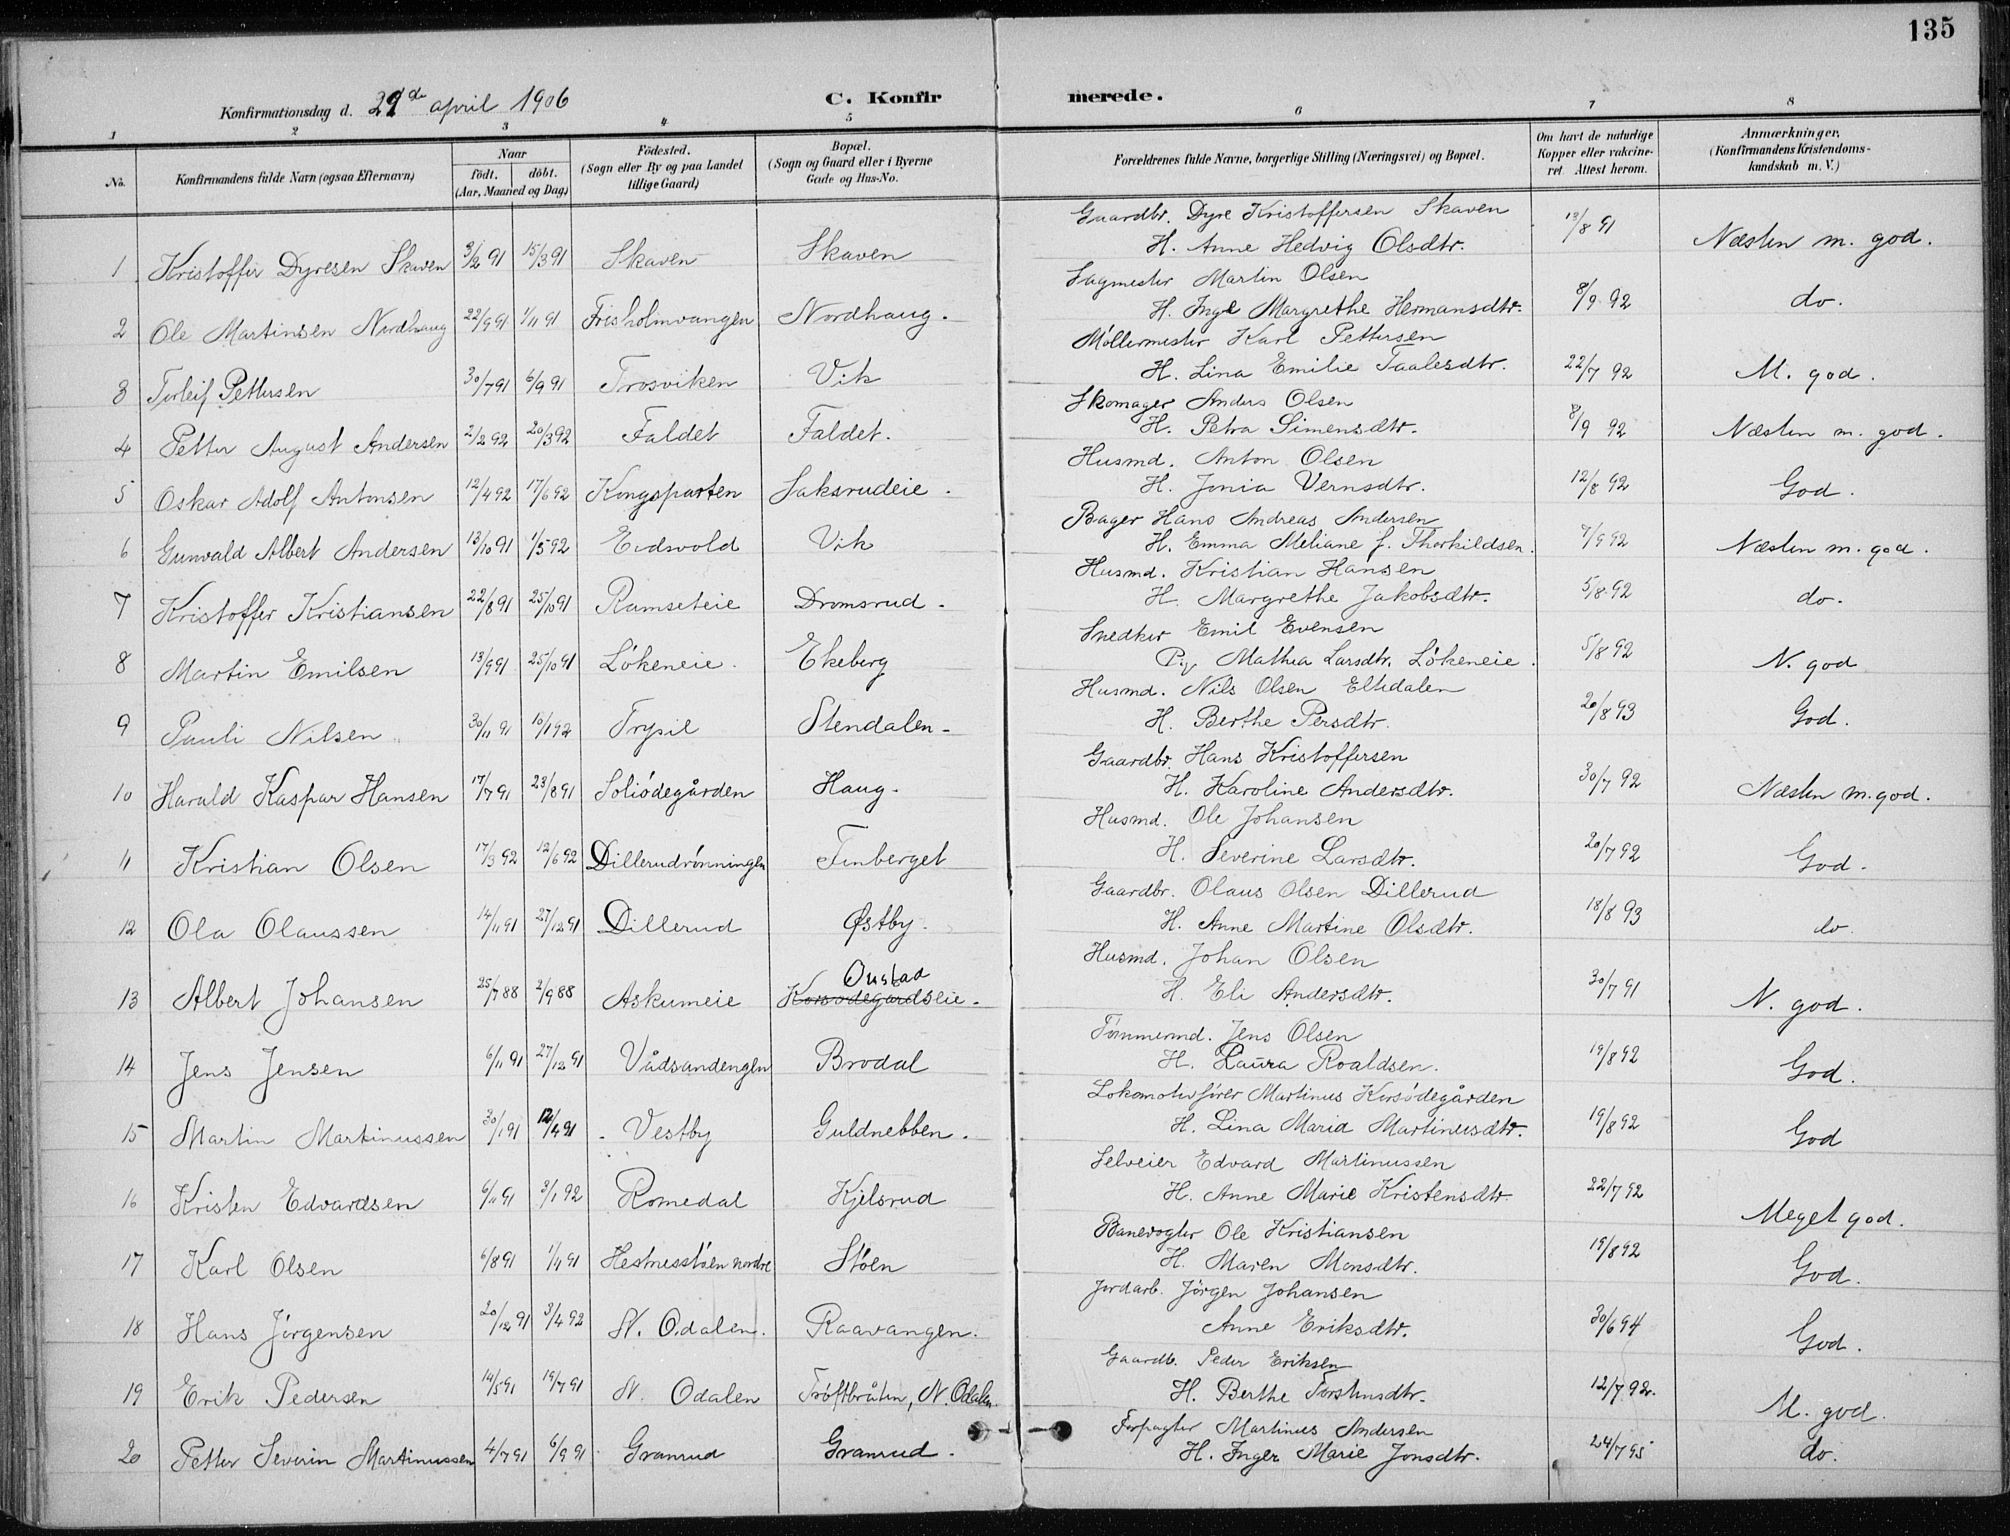 135
Konfirmationsdag d. 29de april 1906
C. Konfirmerede.
1 2 3 4 5 6 7 8
No. Konfirmandens fulde Navn (ogsaa Efternavn) Naar födt. döbt. (Aar, Maaned og Dag) Födested. (Sogn eller By og paa Landet tillige Gaard) Bopæl. (Sogn og Gaard eller i Byerne Gade og Hus-No. Forældrenes fulde Navne, borgerlige Stilling (Næringsvei) og Bopæl. Om havt de naturlige Kopper eller vakcineret. Attest herom. Anmærkninger, (Konfirmandens Kristendomskundskab m. V.)
Gaardbr. Dyre Kristoffersen Skaven
1 Kristoffer Dyresen Skaven 3/2 91 15/3 91 Skaven Skaven H. Anne Hedvig Olsdtr. 13/8 91 Næsten m. god.
Sagmester Martin Olsen
2 Ole Martinsen Nordhaug 22/9 91 1/11 91 Frisholmvangen Nordhaug. H. Inge Margrethe Hermansdtr. 8/9 92 do.
Møllermester Karl Pettersen
3 Torleif Pettersen 30/7 91 6/9 91 Trosviken Vik H. Lina Emilie Taalesdtr. 22/7 92 M. god.
Skomager Anders Olsen
4 Petter August Andersen 2/2 92 20/3 92 Faldet Faldet. H. Petra Simensdtr. 8/9 92 Næsten m. god.
Husmd. Anton Olsen
5 Oskar Adolf Antonsen 12/4 92 17/6 92 Kongsparten Saksrudeie. H. Jonia Vernsdtr. 12/8 92 God.
Bager Hans Andreas Andersen
6 Gunvald Albert Andersen 13/10 91 1/5 92 Eidsvold Vik H. Emma Meliane f. Thorkildsen. 7/9 92 Næsten m. god.
Husmd. Kristian Hansen
7 Kristoffer Kristiansen 22/8 91 25/10 91 Ramseteie Dromsrud. H. Margrethe Jakobsdtr. 5/8 92 do.
Snedker Emil Evensen
8 Martin Emilsen 13/9 91 25/10 91 Løkeneie. Ekeberg Mathea Larsdtr. Løkeneie. 5/8 92 N. god
Husmd. Nils Olsen Eltedalen
9 Pauli Nilsen 30/11 91 10/1 92 Trysil Stendalen. H. Berthe Persdtr. 20/8 93 God.
Gaardbr. Hans Kristoffersen
10 Harald Kaspar Hansen 17/7 91 23/8 91 Soliødegården Haug. H. Karoline Andersdtr. 30/7 92 Næsten m. god.
Husmd. Ole Johansen
11 Kristian Olsen 17/3 92 12/6 92 Dillerudrønningen Finberget H. Severine Larsdtr. 20/7 92 God.
Gaardbr. Olaus Olsen Dillerud
12 Ola Olaussen 14/11 91 27/12 91 Dillerud Østby. H. Anne Martine Olsdtr. 18/8 93 do
Husmd. Johan Olsen
Oustad
13 Albert Johansen 25/7 88 2/9 88 Askumeie Korsødegaardseie. H. Eli Andersdtr. 30/7 91 N. god.
Tømmermd. Jens Olsen
14 Jens Jensen 6/11 91 27/12 91 Vådsandengen Brodal H. Laura Roaldsen. 19/8 92 God.
Lokomotivfører Martinus Korsødegården
15 Martin Martinussen 30/1 91 12/4 91 Vestby Guldnebben. H. Lina Maria Martinusdtr. 19/8 92 God
Selveier Edvard Martinussen
16 Kristen Edvardsen 6/11 91 3/1 92 Romedal Kjelsrud H. Anne Marie Kristensdtr. 22/7 92 Meget god.
Banevogter Ole Kristiansen
17 Karl Olsen 6/8 91 1/11 91 Hestnesstøen nordre Støen H. Maren Monsdtr. 19/8 92 God.
Jordarb. Jørgen Johansen
18 Hans Jørgensen 20/12 91 3/4 92 N. Odalen. Raavangen. Anne Eriksdtr. 30/6 94 God.
Gaardb. Peder Eriksen
19 Erik Pedersen 14/5 91 19/7 91 N. Odalen Trøftbråten, N. Odalen. H. Berthe Torstensdtr. 12/7 92. M. god.
Forpagter Martinus Andersen
20 Petter Severin Martinussen 4/7 91 6/9 91 Granrud Granrud. H. Inger Marie Jonsdtr. 24/7 95 do.